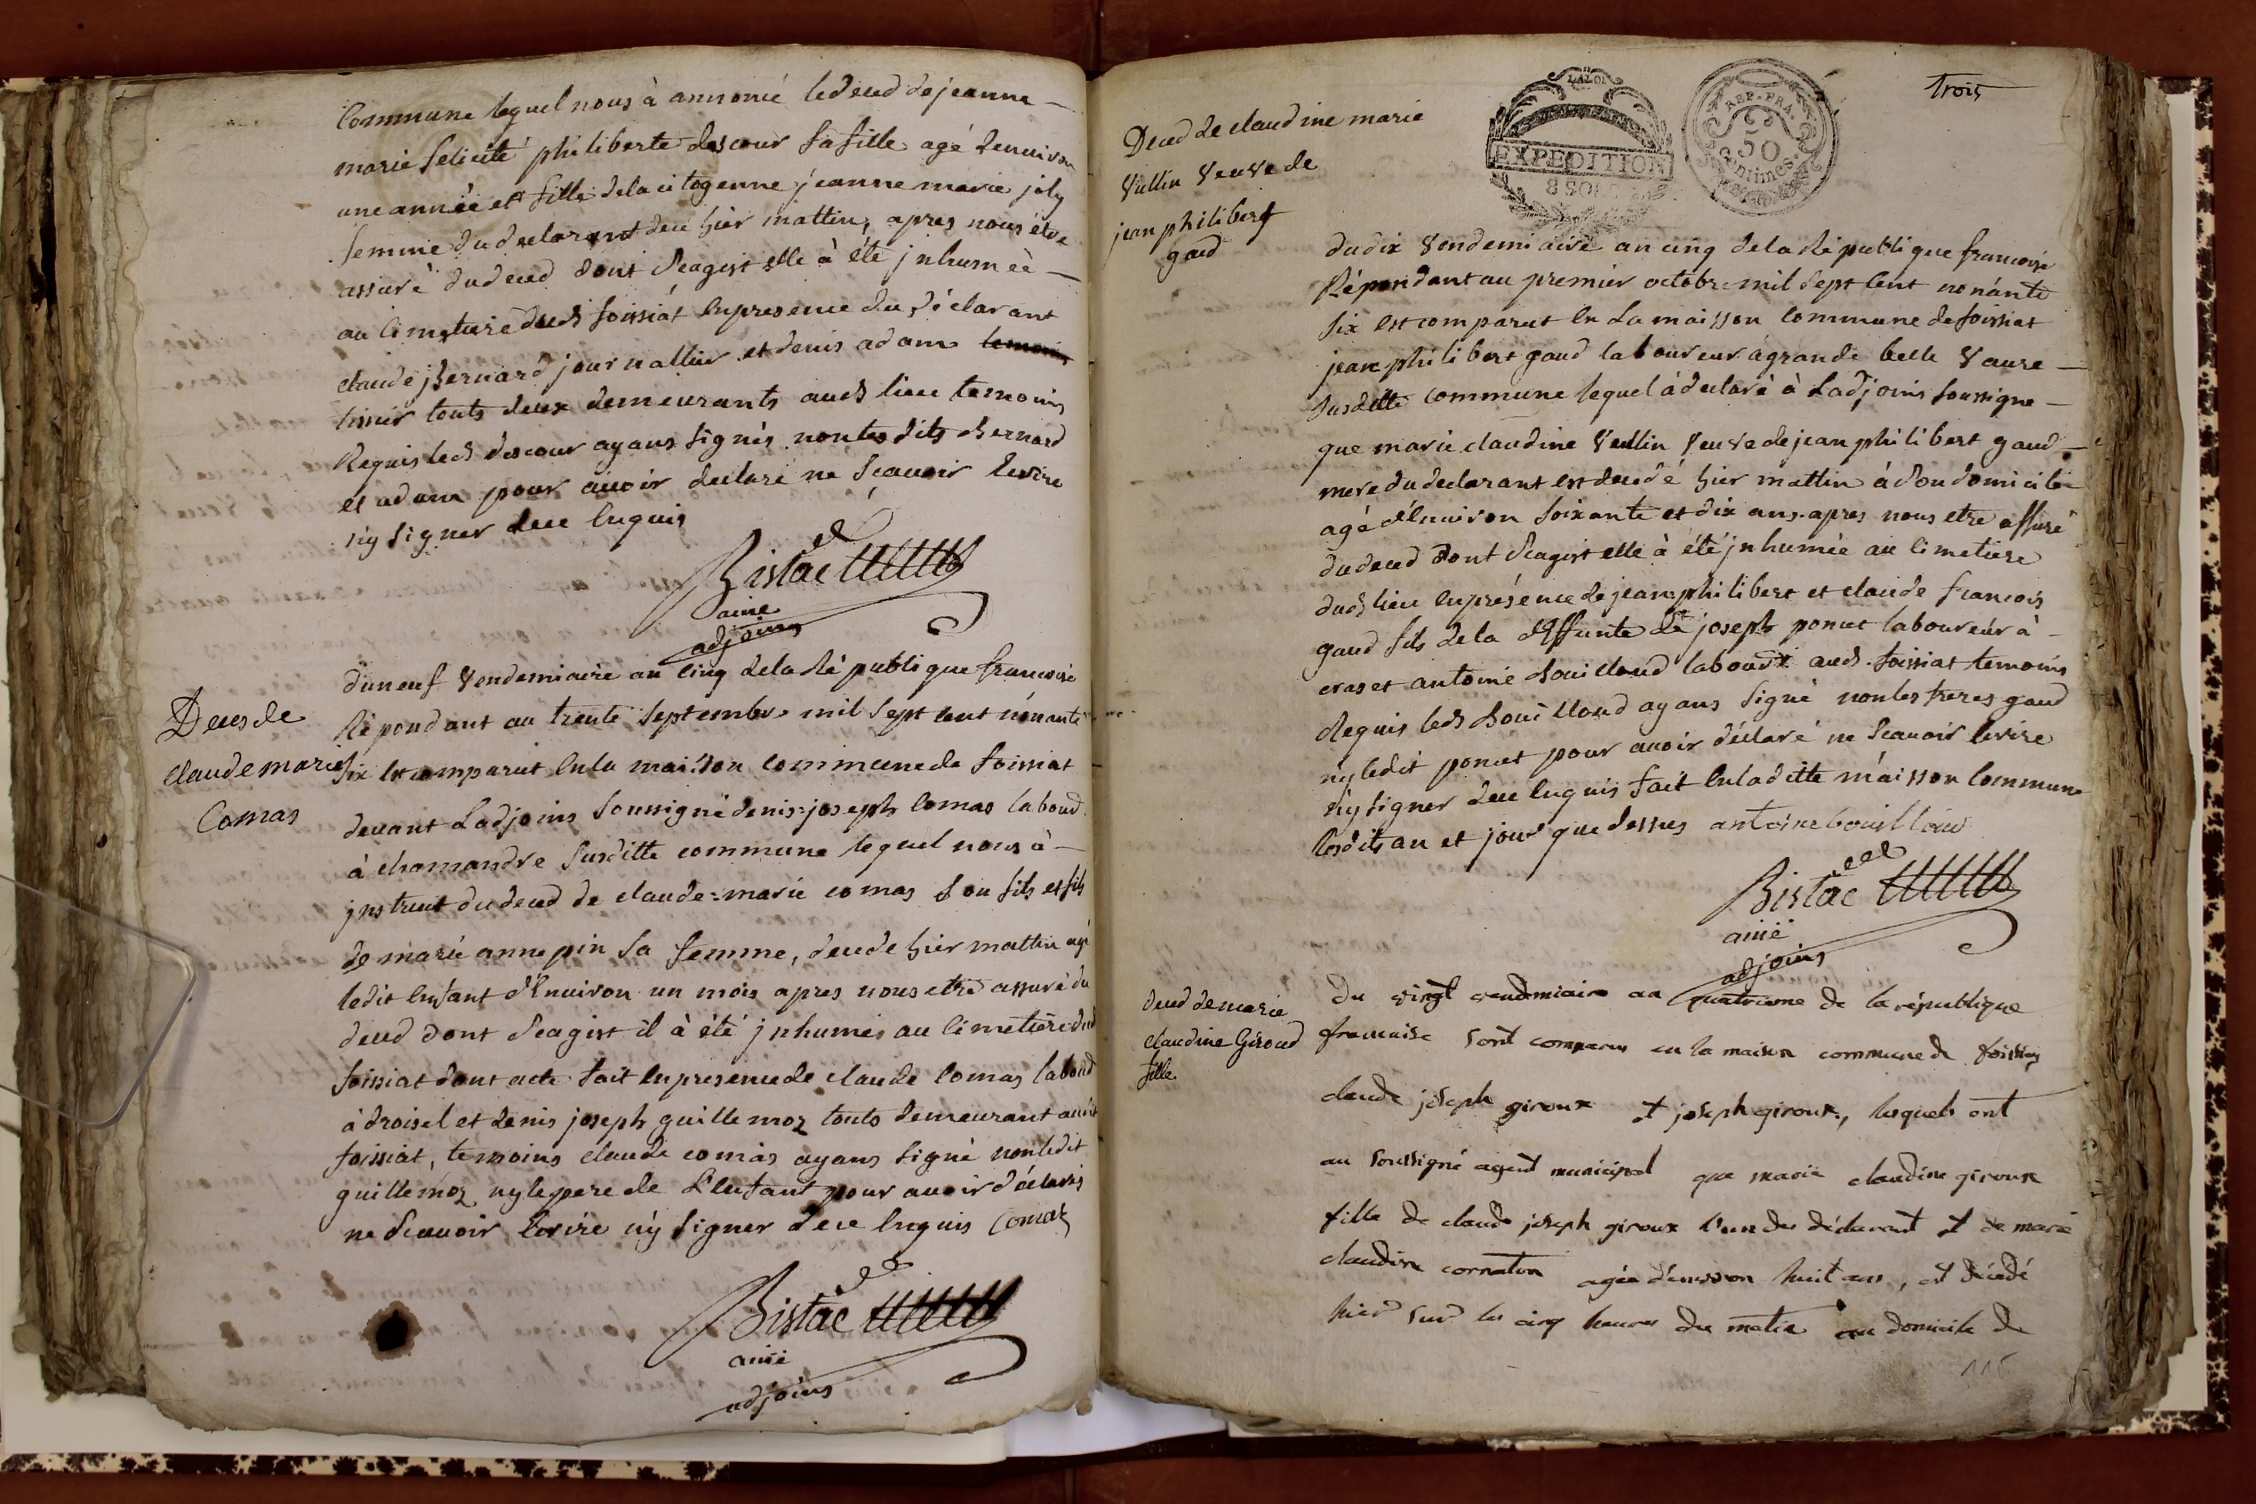 Commune lequel nous à annoncé le deced de jeanne
marie felicité philiberte descour sa fille agé denuiron
une année et fille dela citogenne jeanne marie joly
femme du declarant deu hier mattin, apres nous étre
assuré du deced dont Seagist elle à été jnhumeè
au cimetiere dud foissiat en presence du déclarant
claude Bernard journallier et denis adam
tissier touts deux demeurants aud lieu temoins
Requis led descour ayans signés non les dits Bernard
et adam pour auoir declaré ne Scauoir Ecrire
ny signer dece enquis
Bistac
ainé
adjoins
Deces de
claude marie
Comas
du neuf Vendemiaire an cinq dela République francoise
Répondant au trente septembre mil sept cent nonante
six est comparut en la maison commune de foissiat
deuant Ladjoins soussigné denis-joseph Comas laboud
à chamandre susditte commune lequel nous à
jnstruit du deced de claude-marie comas son fils et fils
de marie anne pin sa femme, decede hier mattin agé
ledit enfant d'Enuiron un mois apres nous etre assuré du
deced dont Seagist il à été jnhumés au cimetiere dud
foissiat dont acte fait en presence de claude Comas laboud
à droisel et denis joseph guillemoz touts demeurant audit
foissiat, temoins claude comas ayans signé non ledit
guillemoz ny le pere de L'enfant pour auoir déclarés
ne Scauoir Ecrire ny signer dece enquis Comas
Bistac
ainé
adjoins
trois
LA LOI
EXPEDITION
8 SOLS
REP. FRA.
50
Centimes.
Deced de claudine marie
Vullin Veuve de
jean philibert
gaud
du dix Vendemiaire an cinq dela République francoise
Répondant au premier octobre mil sept cent nonante
six est comparut en La maisson commune de foissiat
jean philibert gaud laboureur à grande belle Vaure
susditte commune lequel à declaré à Ladjoins soussigné
que marie claudine Vullin Veuve de jean philibert gaud
mere du declarant est decedé hier mattin à son domicile
agé d'Enuiron soixante et dix ans apres nous etre assuré
du deced dont Seagist elle à été jnhumée au cimetiere
dud lieu en présence de jean philibert et claude francois
gaud fils de la deffunte de joseph poncet laboureur à
cras et antoine Bouilloud labour aud foissiat temoins
Requis led Bouilloud ayans signé non les freres gaud
ny ledit poncet pour auoir déclaré ne Scauoir Ecrire
ny signer dece enquis fait en laditte maisson Commune
lesdits an et jour que dessus antoine bouilloud
Bistac
ainé
adjoins
deced de marie
claudine Giroud
fille
du vingt vendemiaire an quatrieme de la république
francaise sont comparus en la maison commune de foissiat
claude joseph giroux et joseph giroux, lesquels ont
au soussigné agent municipal que marie claudine giroux
fille de claude joseph giroux l'un des déclarant et de marie
claudine cornaton agée d'environ huit ans, est décédé
hier sur les cinq heures du matin au domicile de
115